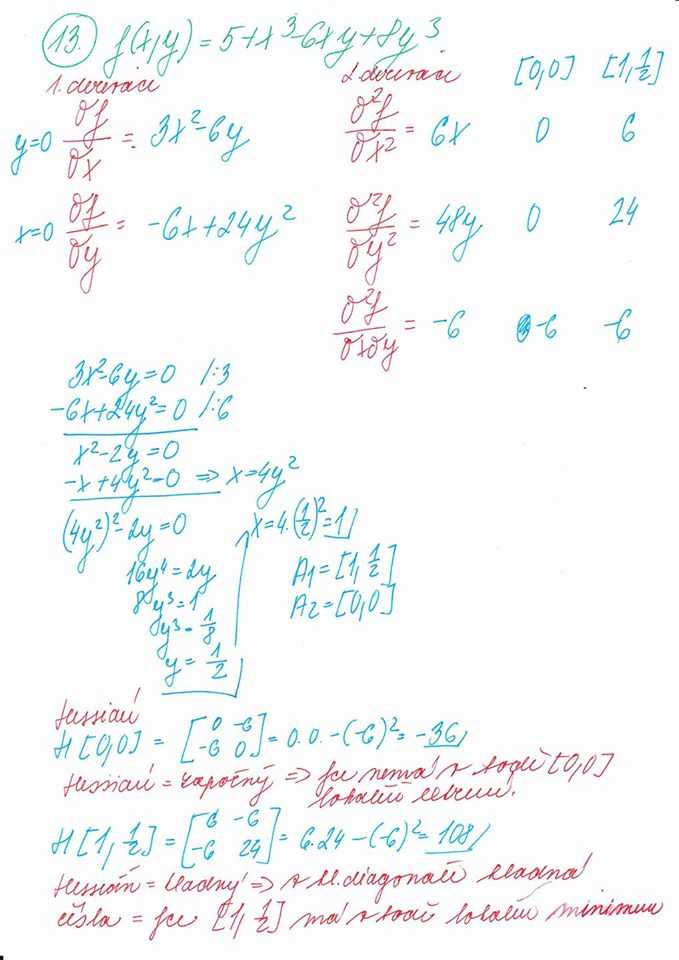 13. f(x,y) = 5+x³-6xy+8y³
1. derivace
2. derivace [0,0] [1,½]
y=0 ∂f/∂x = 3x²-6y
∂²f/∂x² = 6x 0 6
x=0 ∂f/∂y = -6x+24y²
∂²f/∂y² = 48y 0 24
∂²f/∂x∂y = -6 -6 -6
3x²-6y=0 /:3
-6x+24y²=0 /:6
x²-2y=0
-x+4y²=0 ⇒ x=4y²
(4y²)²-2y=0
x=4.(½)²=1
16y⁴=2y
8y³=1
y³=1/8
y=½
A1=[1,½]
A2=[0,0]
Hessián
H[0,0] = [0 -6
-6 0] = 0.0.-(-6)²=-36
Hessián = záporný ⇒ fce nemá v bodě [0,0]
lokální extrém.
H[1,½] = [6 -6
-6 24] = 6.24-(-6)²=108
Hessián = kladný ⇒ v hl. diagonále kladná
čísla = fce [1,½] má v bodě lokální minimum